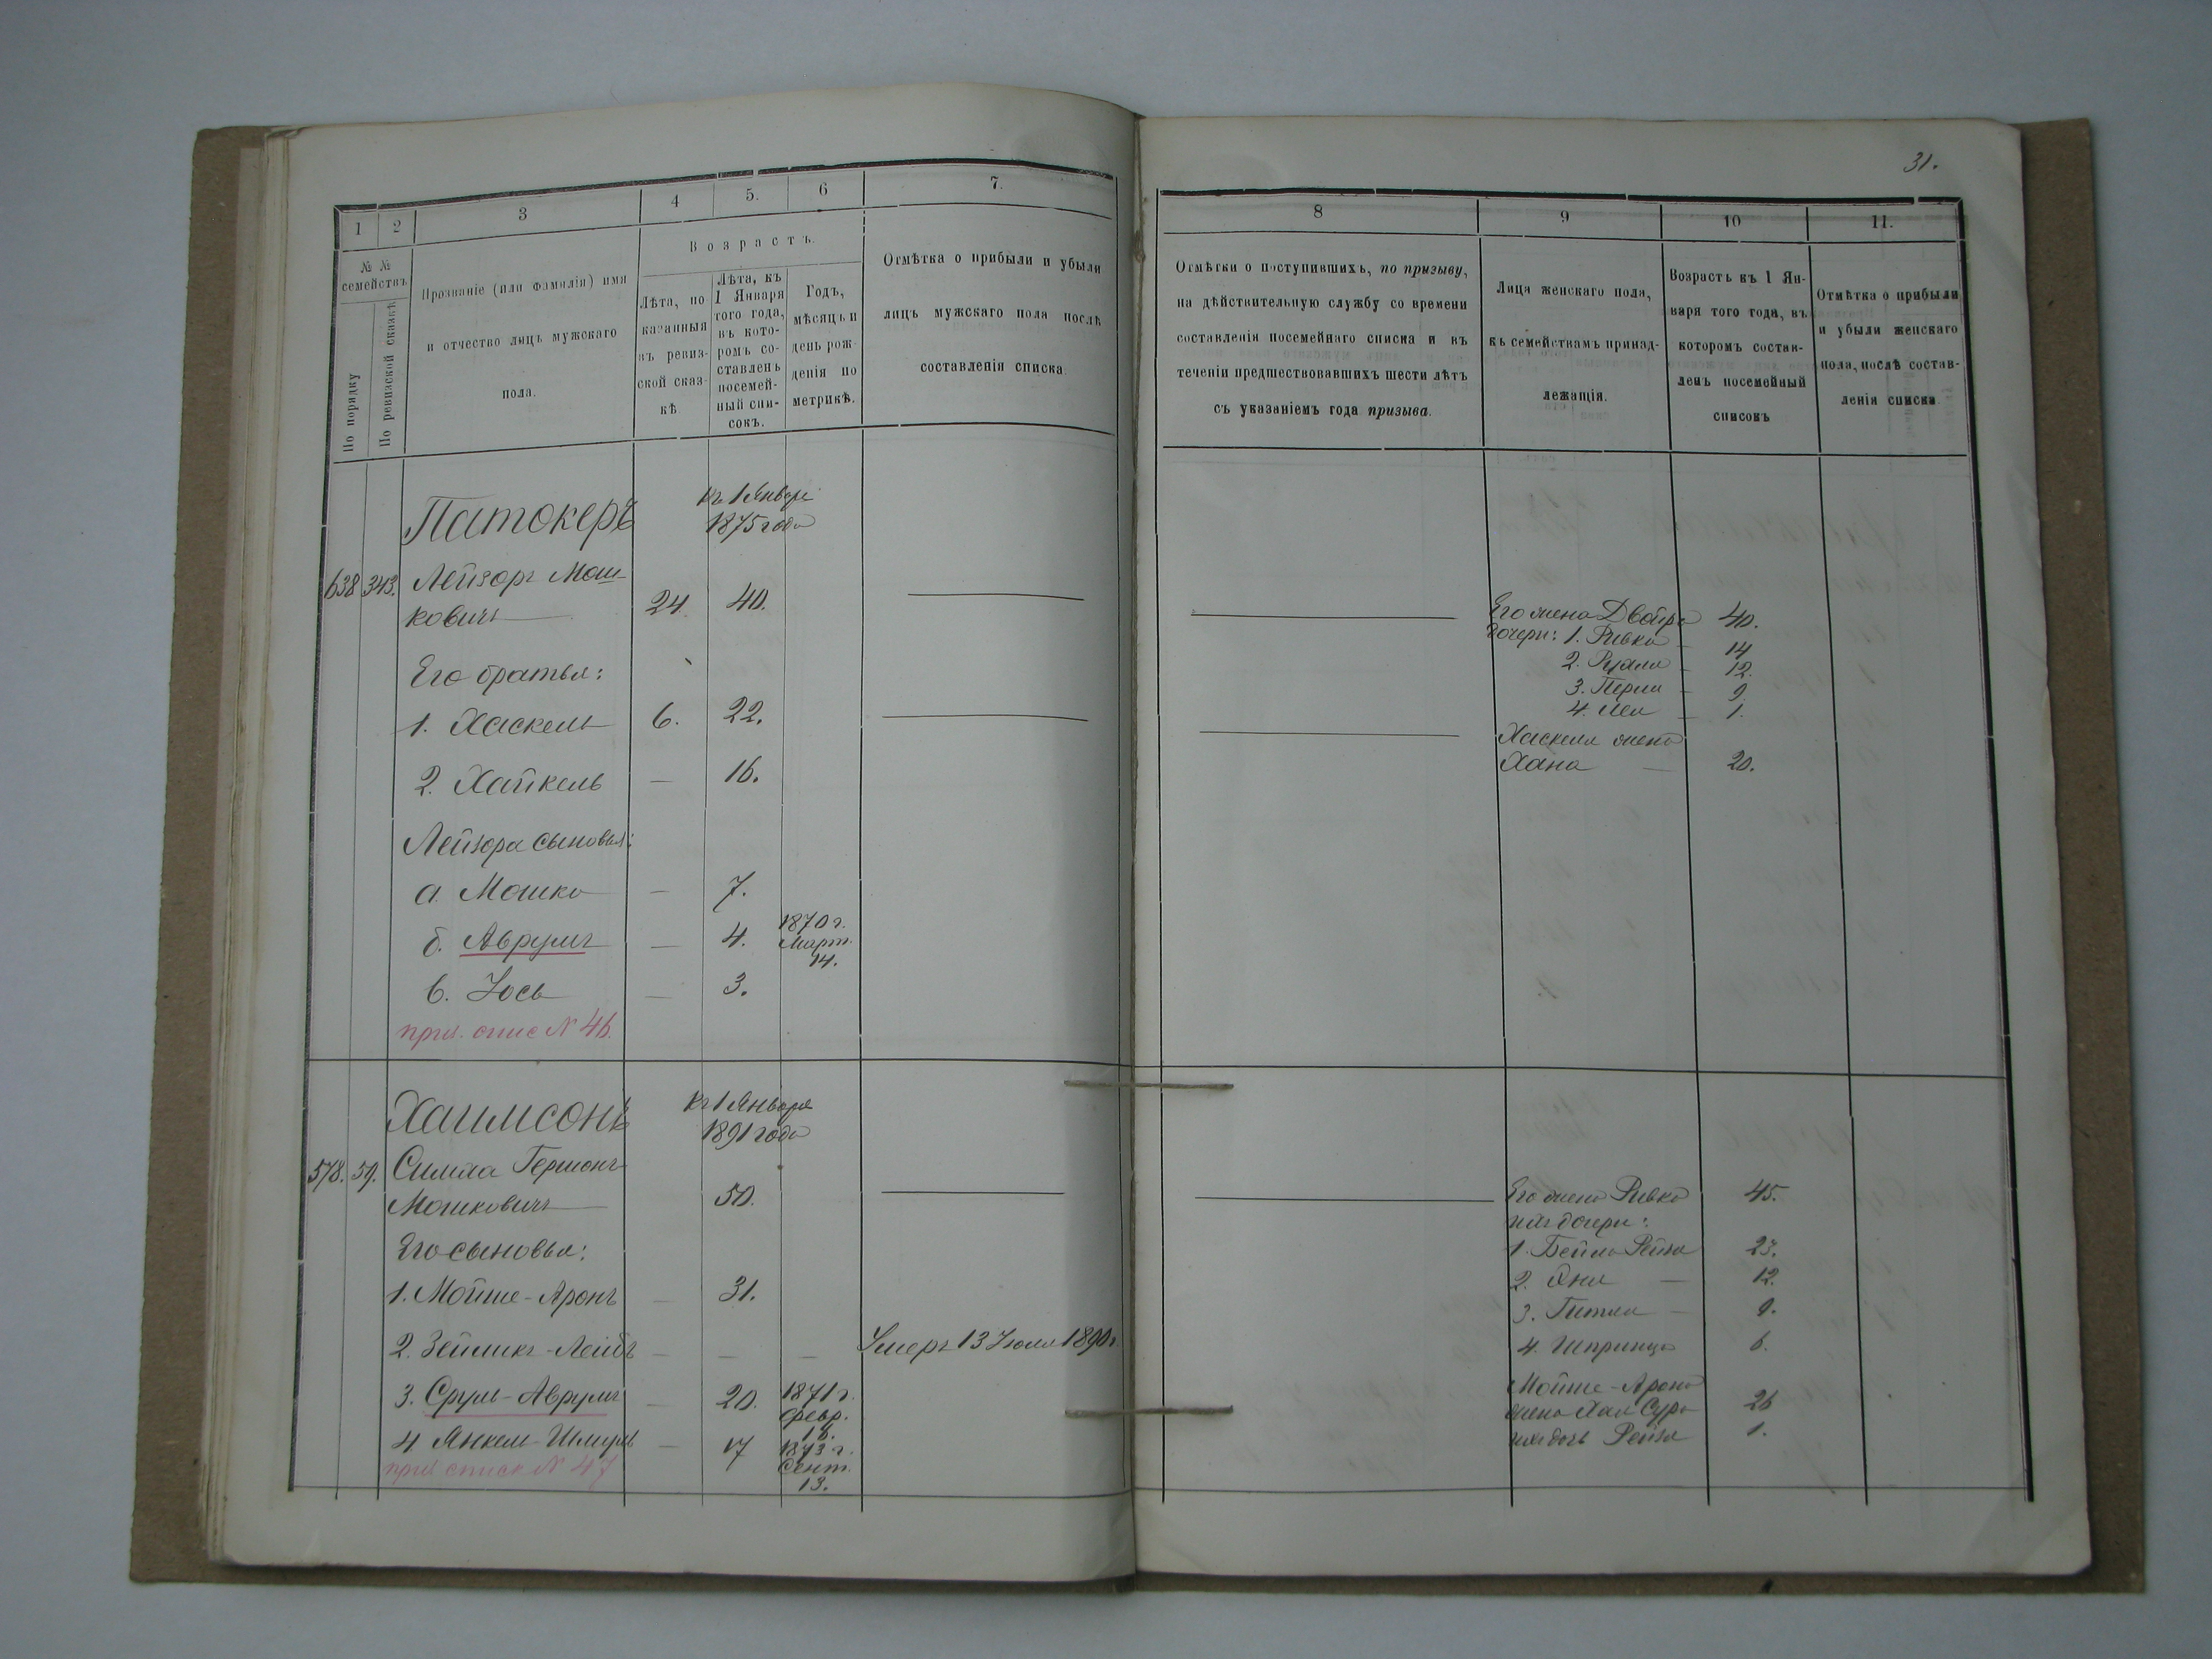 31.
1
2
3
4
5.
6
7.
№ №
семействъ
По порядку
По ревизской сказкѣ
Прозваніе (или фамилія) имя
и отчество лицъ мужскаго
пола.
Возрастъ.
Лѣта, по
казанныя
въ ревиз-
ской сказ-
кѣ
Лѣта, къ
1 Января
того года,
въ кото-
ромъ со-
ставленъ
посемей-
ный спи-
сокъ.
Годъ,
мѣсяцъ и
день рож-
денія по
метрикѣ.
Отмѣтка о прибыли и убыли
лицъ мужскаго пола послѣ
составленія списка.
Патокеръ
къ 1 Января
1875 года
638 343. Лейзоръ Мош-
ковичъ 24. 40.
Его братья:
1. Хаскель 6. 22.
2. Хайкель — 16.
Лейзора сыновья:
а. Мошко — 7.
б. Аврумъ — 4. 1870 г.
Март.
14.
в. Іось — 3.
приз. спис № 46.
Хаимсонъ
къ 1 Января
1891 года
578. 59. Симха Гершонъ
Мошковичъ 50.
Его сыновья:
1. Мойше-Аронъ — 31.
2. Зеймикъ-Лейбъ — — — Умеръ 13 Іюля 1890 г.
3. Сруль-Аврумъ — 20. 1871 г.
февр.
18.
4 Янкель-Шмуль — 17 1873 г.
Сент.
13.
приз. списк № 47
8
9
10
11.
Отмѣтки о поступившихъ, по призыву,
на дѣйствительную службу со времени
составленія посемейнаго списка и въ
теченіи предшествовавшихъ шести лѣтъ
съ указаніемъ года призыва.
Лица женскаго пола,
къ семействамъ принад-
лежащія.
Возрастъ къ 1 Ян-
варя того года, въ
которомъ состав-
ленъ посемейный
списокъ
Отмѣтка о прибыли
и убыли женскаго
пола, послѣ состав-
ленія списка
Его жена Двойра 40.
дочери: 1. Ривка — 14
2. Рухля — 12.
3. Перля — 9.
4. Лея — 1.
Хаскеля жена
Хана — 20.
Его жена Ривка 45.
ихъ дочери:
1. Бейла Рейза 23.
2. Хня — 12.
3. Гитля — 9.
4. Шпринца 6.
Мойше-Арона
жена Хая Сура 26
ихъ дочь Рейза 1.